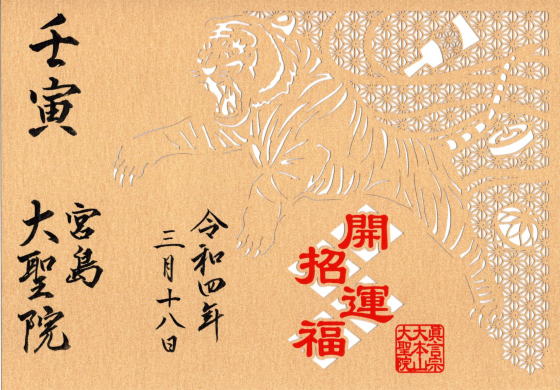 開運
招福
眞言宗
大本山
大聖院
令和四年
三月十八日
壬寅
宮島
大聖院